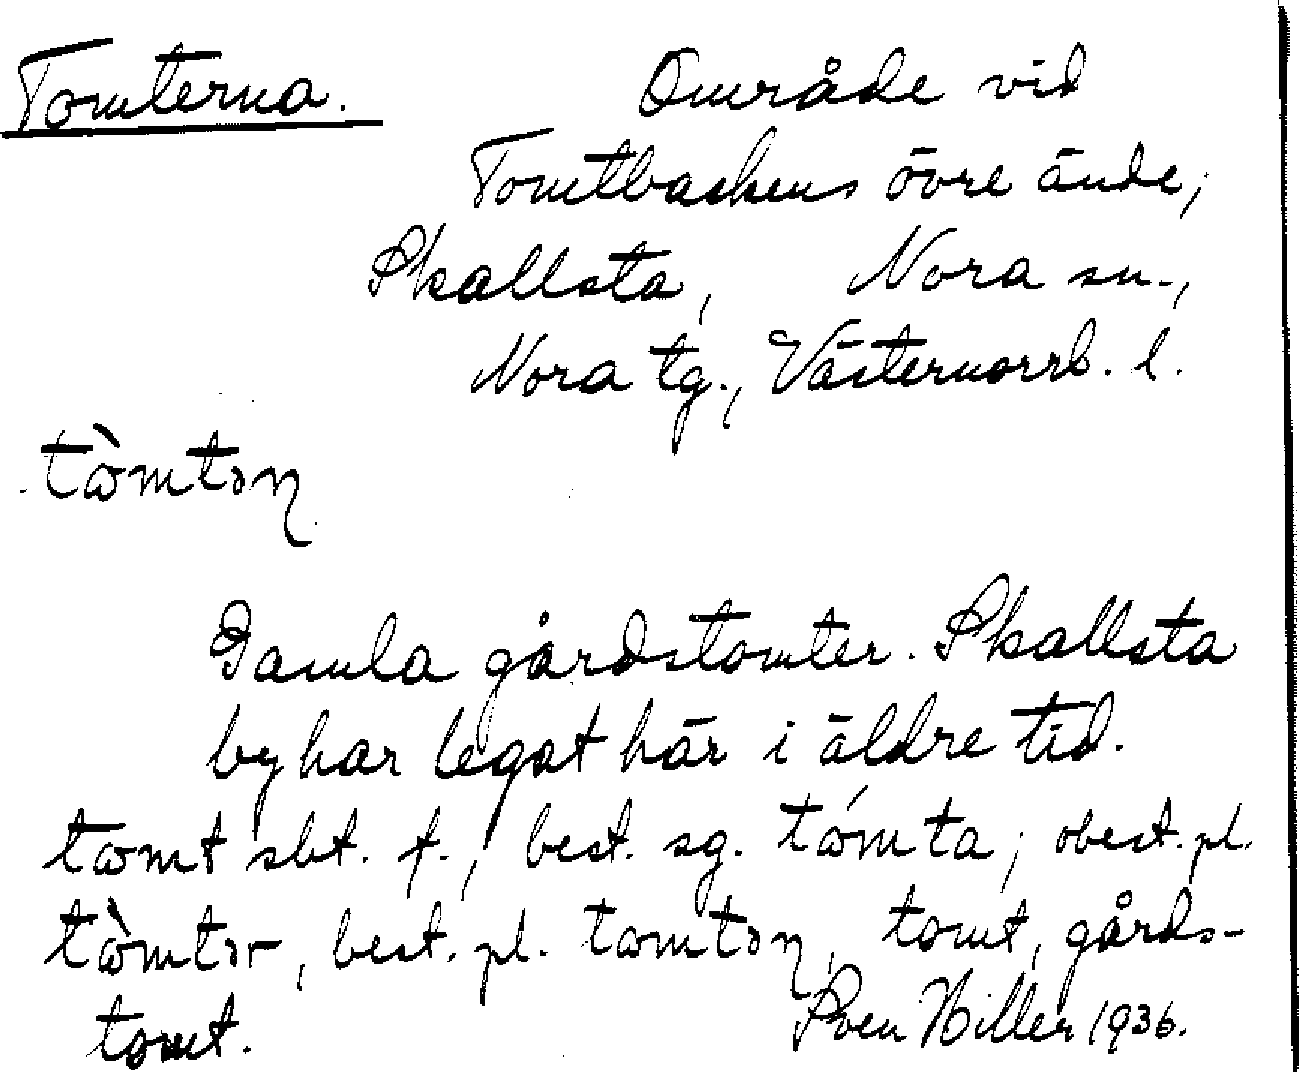 Tomterna. Område vid
Tomtbackens övre ände,
Skallsta, Nora sn.,
Nora tg., Västernorrl. l.
tòmtəɳ
Gamla gårdstomter. Skallsta
by har legat här i äldre tid.
tomt sbt. f., best. sg. tómta; obest. pl.
tòmtər, best. pl. tomtəɳ, tomt, gårds-
tomt. Sven Hiller 1936.